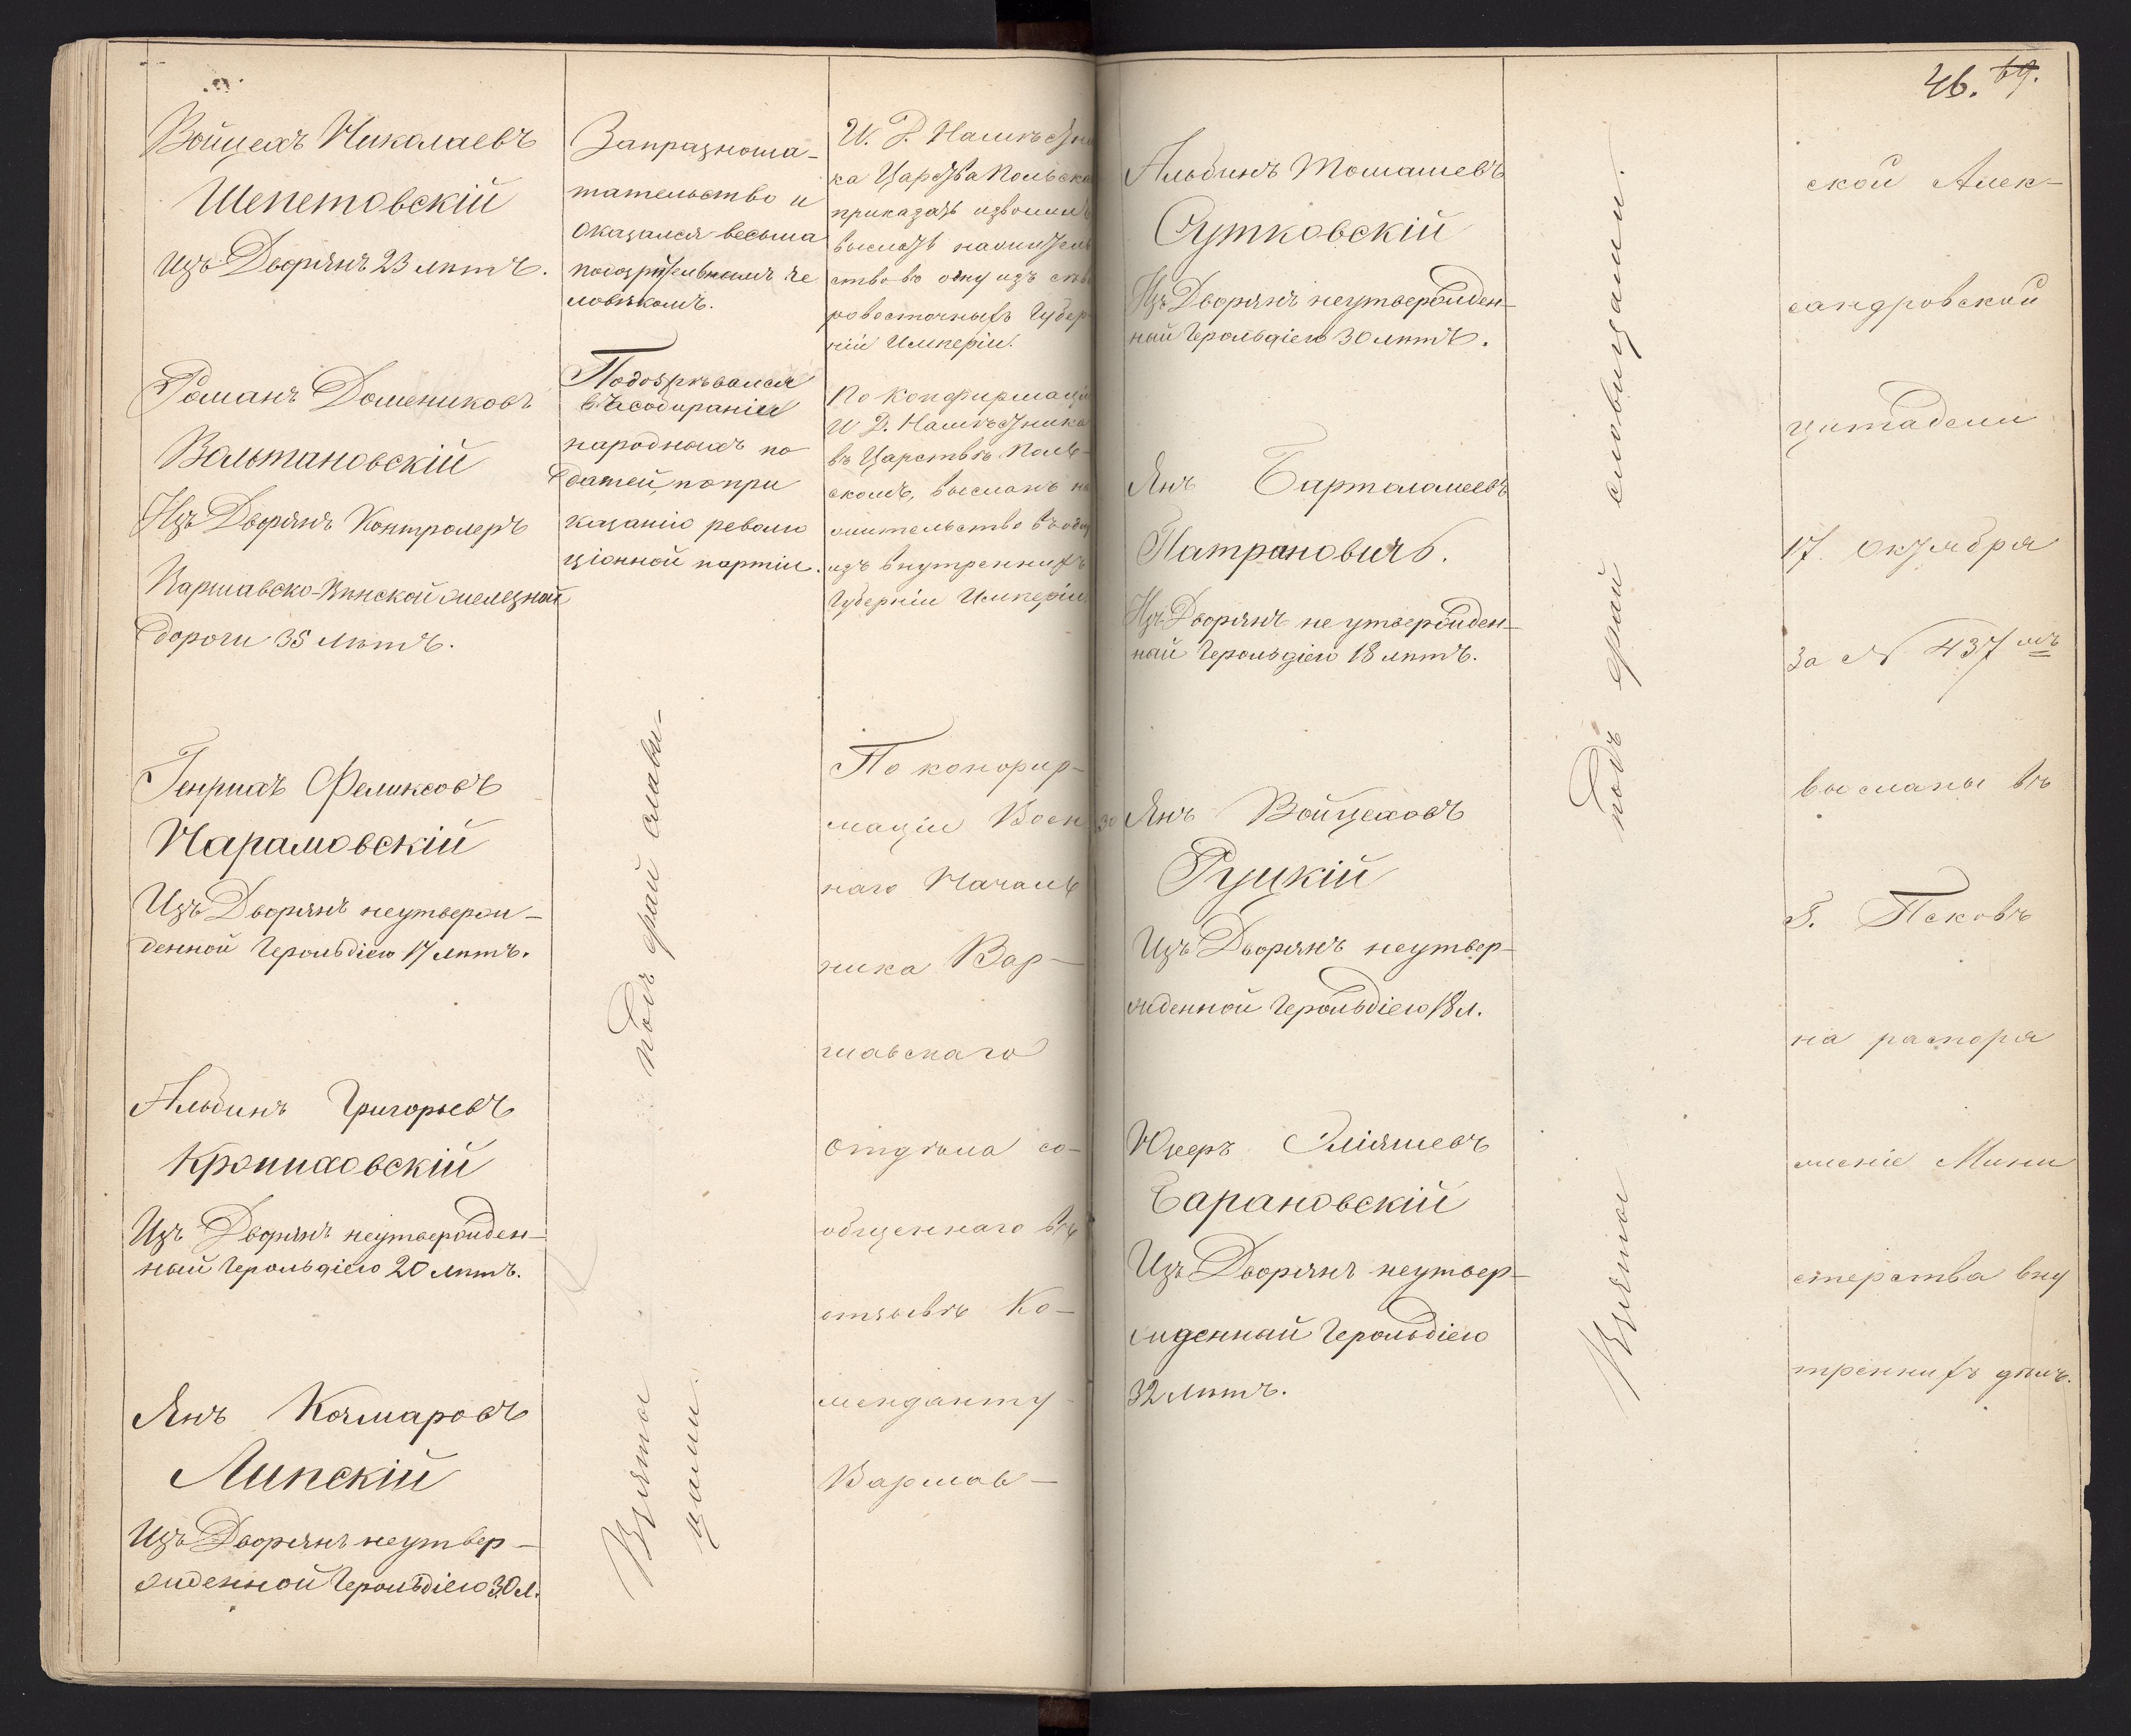 Войцехъ Николаевъ
Шепетовскій
Изъ Дворянъ 23 лѣтъ.
Романъ Домениковъ
Вольтановскій
Изъ Дворянъ Контролеръ
Варшавско-Вѣнской желѣзной
дороги 35 лѣтъ.
Генрихъ Феликсовъ
Чарамовскій
Изъ Дворянъ неутверж-
денной Герольдіею 17 лѣтъ.
Альбинъ Григорьевъ
Кропиховскій
Изъ Дворянъ неутвержден-
ный Герольдіею 20 лѣтъ.
Янъ
Липскій
Изъ Дворянъ неутвер-
жденной Герольдіею 30 л.
За празношa-
тательство и
оказался весьма
подозрительнымъ че
ловѣкомъ.
Подозрѣвался
въ собираніи
народныхъ по
датей, по при
казанію револю
ціонной партіи.
Взяты подъ фрай слави-
цами.
И. Д. Намѣстни
ка Царства Польска
приказать изволилъ
выслать на жительс
тво въ одну изъ сѣве
ровосточныхъ Губер
ній Имперіи.
По конфирмаціи
И Д. Намѣстника
въ Царствѣ Поль-
скомъ, высланъ на
жительство въ одну
изъ внутреннихъ
Губерніи Имперіи.
По конфир-
маціи Воен
наго Началь
ника Вар-
шавскаго
Отдѣла со-
общеннаго въ
отзывѣ Ко-
менданту
Варшав-
46. 69.
Альбинъ Томашевъ
Сутковскій
Изъ Дворянъ неутвержден-
ный Герольдіею 30 лѣтъ.
Янъ Барталомеевъ
Патрановичъ.
Изъ Дворянъ не утвержден-
ный Герольдіею 18 лѣтъ.
Янъ Войцеховъ
Руцкій
Изъ Дворянъ неутвер-
жденной Герольдіею 18 л.
Юзефъ Эліяшевъ
Барановскій
Изъ Дворянъ неутвер-
жденный Герольдіею
32 лѣтъ.
Взяты подъ фрай словицами.
ской Алек-
сандровской
цитадели
17 Октября
за № 437 мъ
высланы въ
Г. Псковъ
на распоря
женіе Мини
стерства вну
треннихъ дѣлъ.